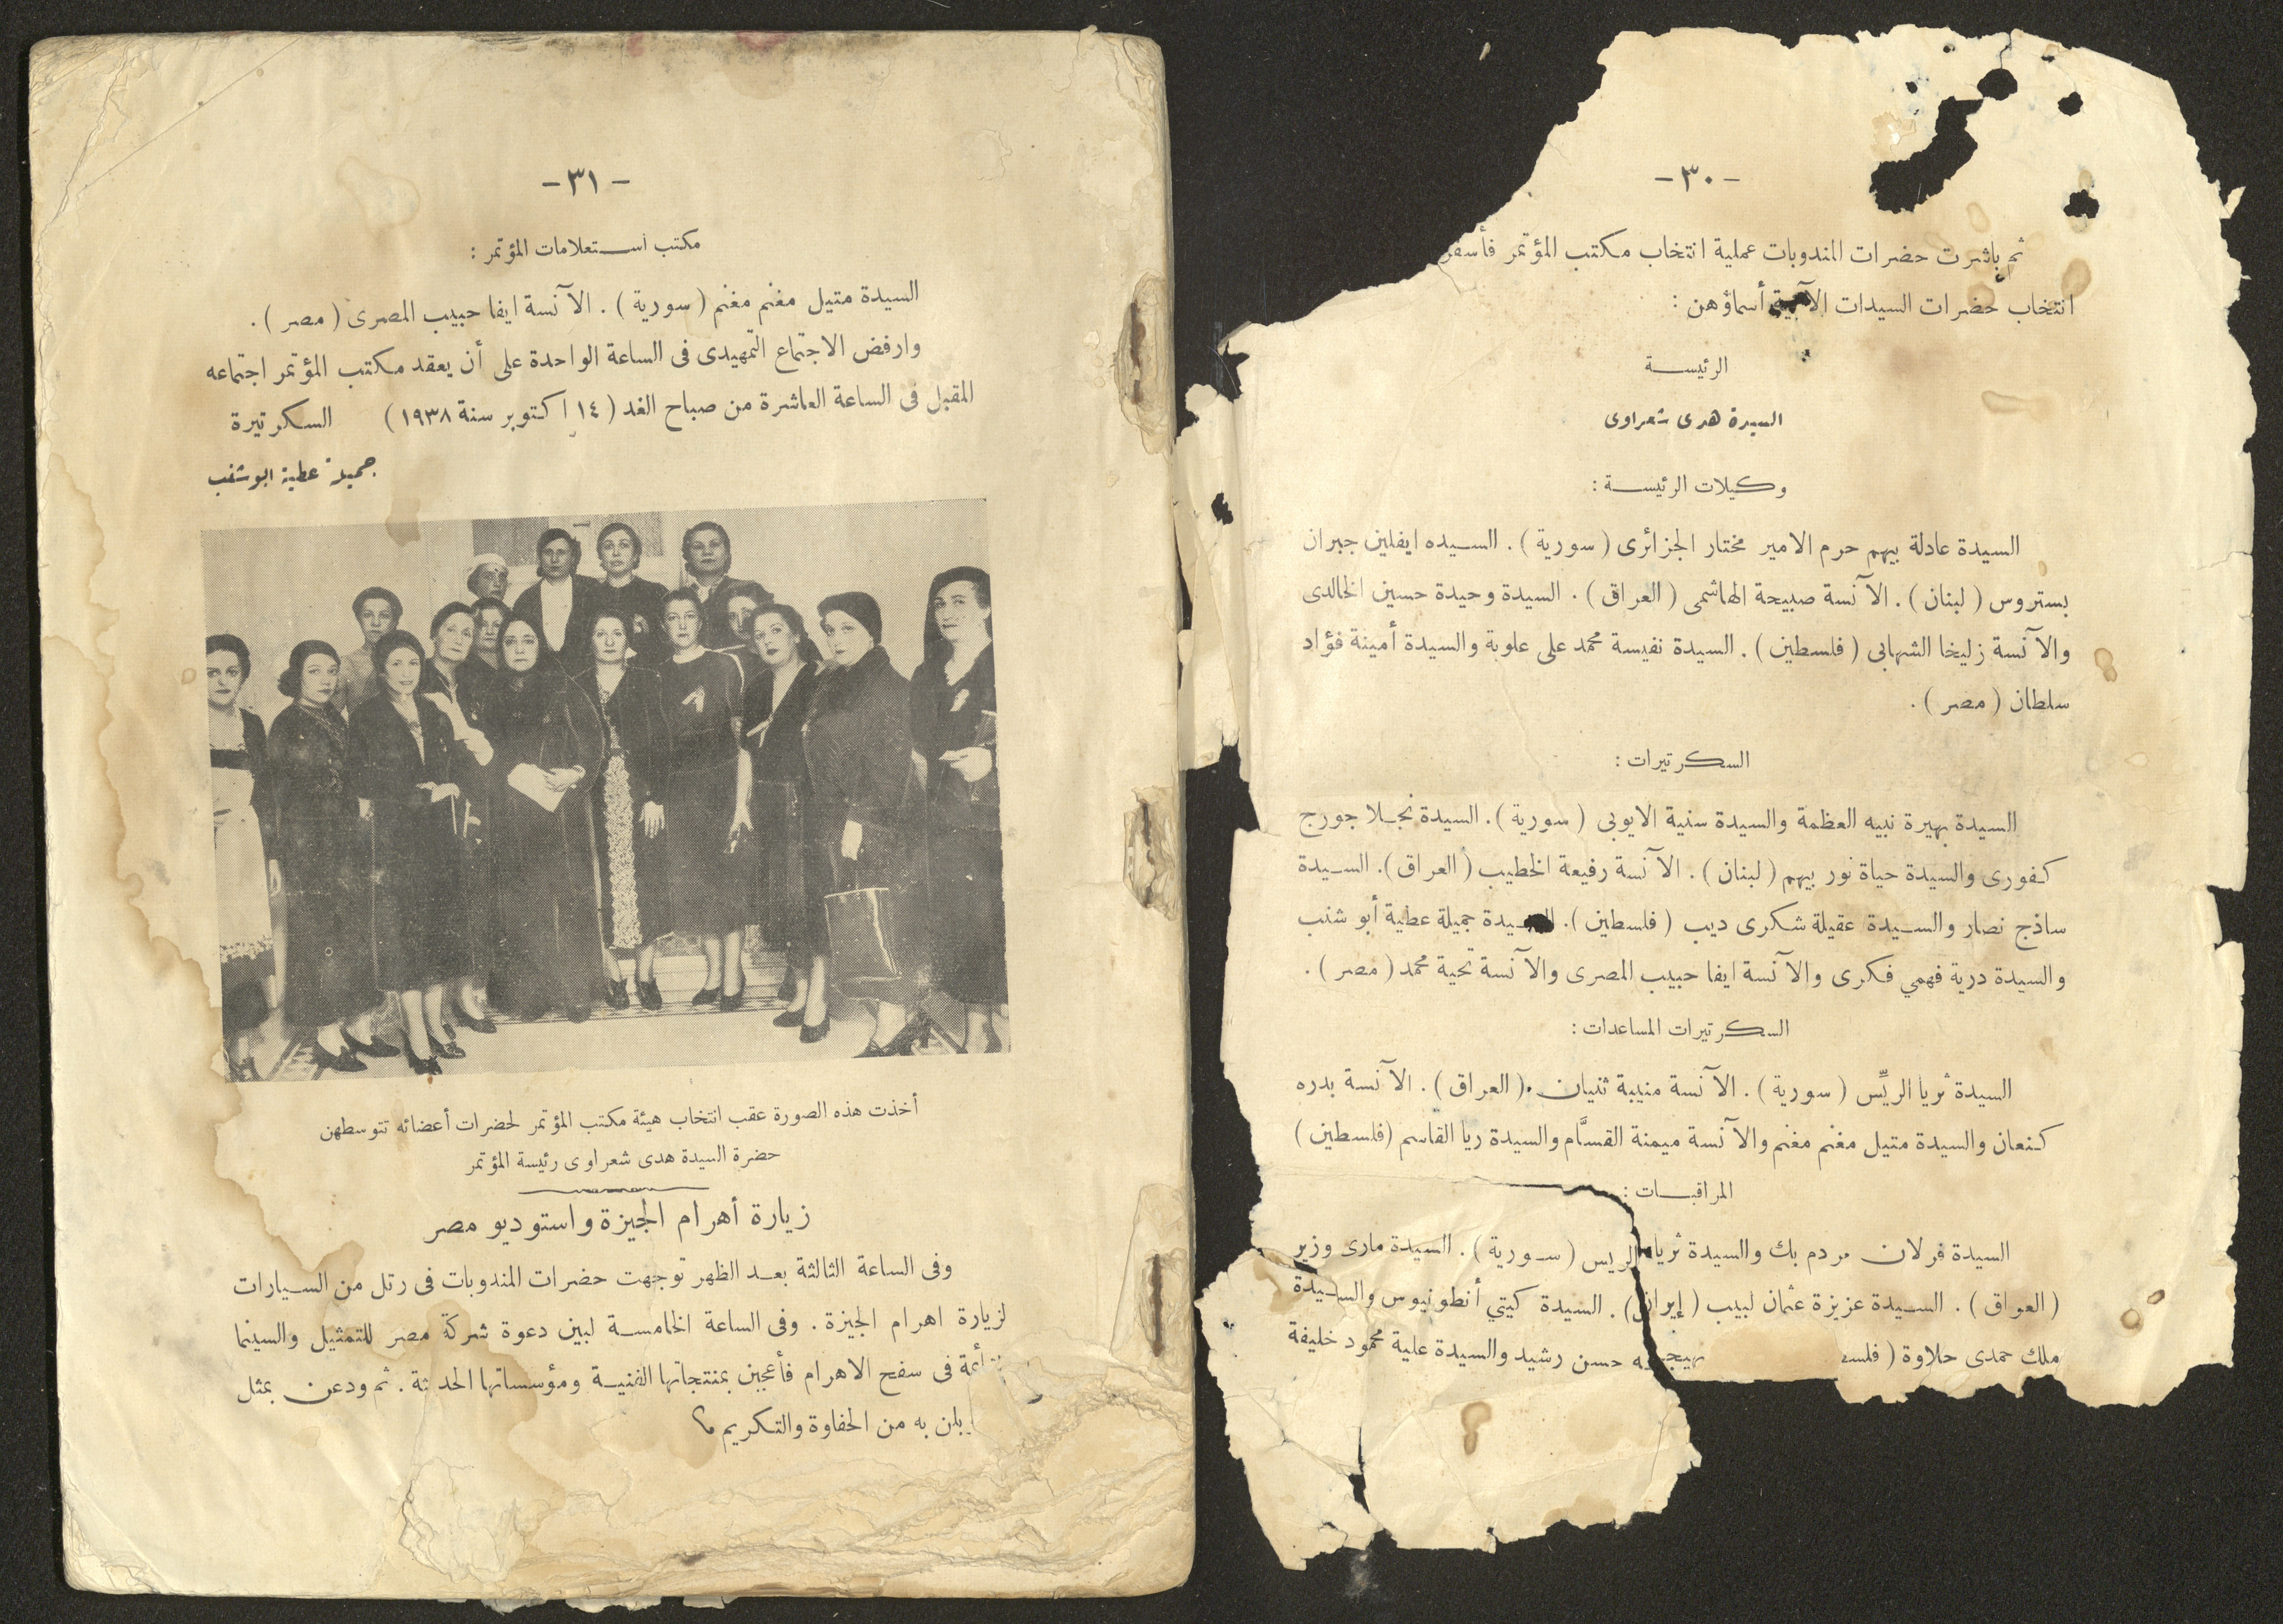 - ٣٠ -
ثم باشرت حضرات المندوبات عملية انتخاب مكتب المؤتمر فأسفر
انتخاب حضرات السيدات الآتية أسماؤهن :
الرئيسة
السيدة هدى شعراوى
وكيلات الرئيسة :
السيدة عادلة بيهم حرم الامير مختار الجزائرى ( سورية ) . السيده ايفلين جبران
بستروس ( لبنان ) . الآنسة صبيحة الهاشمى ( العراق ) . السيدة وحيدة حسين الخالدى
والآنسة زليخا الشهابى ( فلسطين ) . السيدة نفيسة محمد على علوبة والسيدة أمينة فؤاد
سلطان ( مصر ) .
السكرتيرات :
السيدة بهيرة نبيه العظمة والسيدة سنية الايوبى ( سورية ) . السيدة نجلا جورج
كفورى والسيدة حياة نور بيهم ( لبنان ) . الآنسة رفيعة الخطيب ( العراق ) . السيدة
ساذج نصار والسيدة عقيلة شكرى ديب ( فلسطين ) . السيدة جميلة عطية أبو شنب
والسيدة درية فهمي فكرى والآنسة ايفا حبيب المصرى والآنسة تحية محمد ( مصر ) .
السكرتيرات المساعدات :
السيدة ثريا الريّس ( سورية ) . الآنسة منيبة ثنيان . ( العراق ) . الآنسة بدره
كنعان والسيدة متيل مغنم مغنم والآنسة ميمنة القسَّام والسيدة ريا القاسم ( فلسطين )
المراقبات :
السيدة فرلان مردم بك والسيدة ثريا الريس ( سورية ) . السيدة مارى وزير
( العراق ) . السيدة عزيزة عثمان لبيب ( إيران ) . السيدة كيتي أنطونيوس والسيدة
ملك حمدى حلاوة ( حسن رشيد والسيدة علية محمود خليفة
- ٣١ -
مكتب استعلامات المؤتمر :
السيدة متيل مغنم مغنم ( سورية ) . الآنسة ايفا حبيب المصرى ( مصر ) .
وارفض الاجتماع التمهيدى فى الساعة الواحدة على أن يعقد مكتب المؤتمر اجتماعه
المقبل فى الساعة العاشرة من صباح الغد ( ١٤ اكتوبر سنة ١٩٣٨ ) السكرتيرة
جميلة عطية ابو شنب
أخذت هذه الصورة عقب انتخاب هيئة مكتب المؤتمر لحضرات أعضائه تتوسطهن
حضرة السيدة هدى شعراوى رئيسة المؤتمر
زيارة أهرام الجيزة واستوديو مصر
وفى الساعة الثالثة بعد الظهر توجهت حضرات المندوبات فى رتل من السيارات
لزيارة اهرام الجيزة . وفى الساعة الخامسة لبين دعوة شركة مصر للتمثيل والسينما
فى سفح الاهرام فأعجبن بمنتجاتها الفنية ومؤسساتها الحديثة . ثم ودعن بمثل
به من الحفاوة والتكريم م